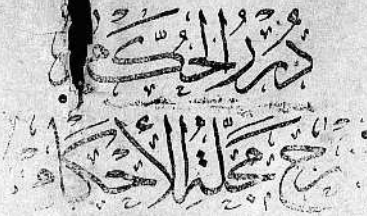 دُرَرُ الحُكَّام
شرح مجلّة الأحكام